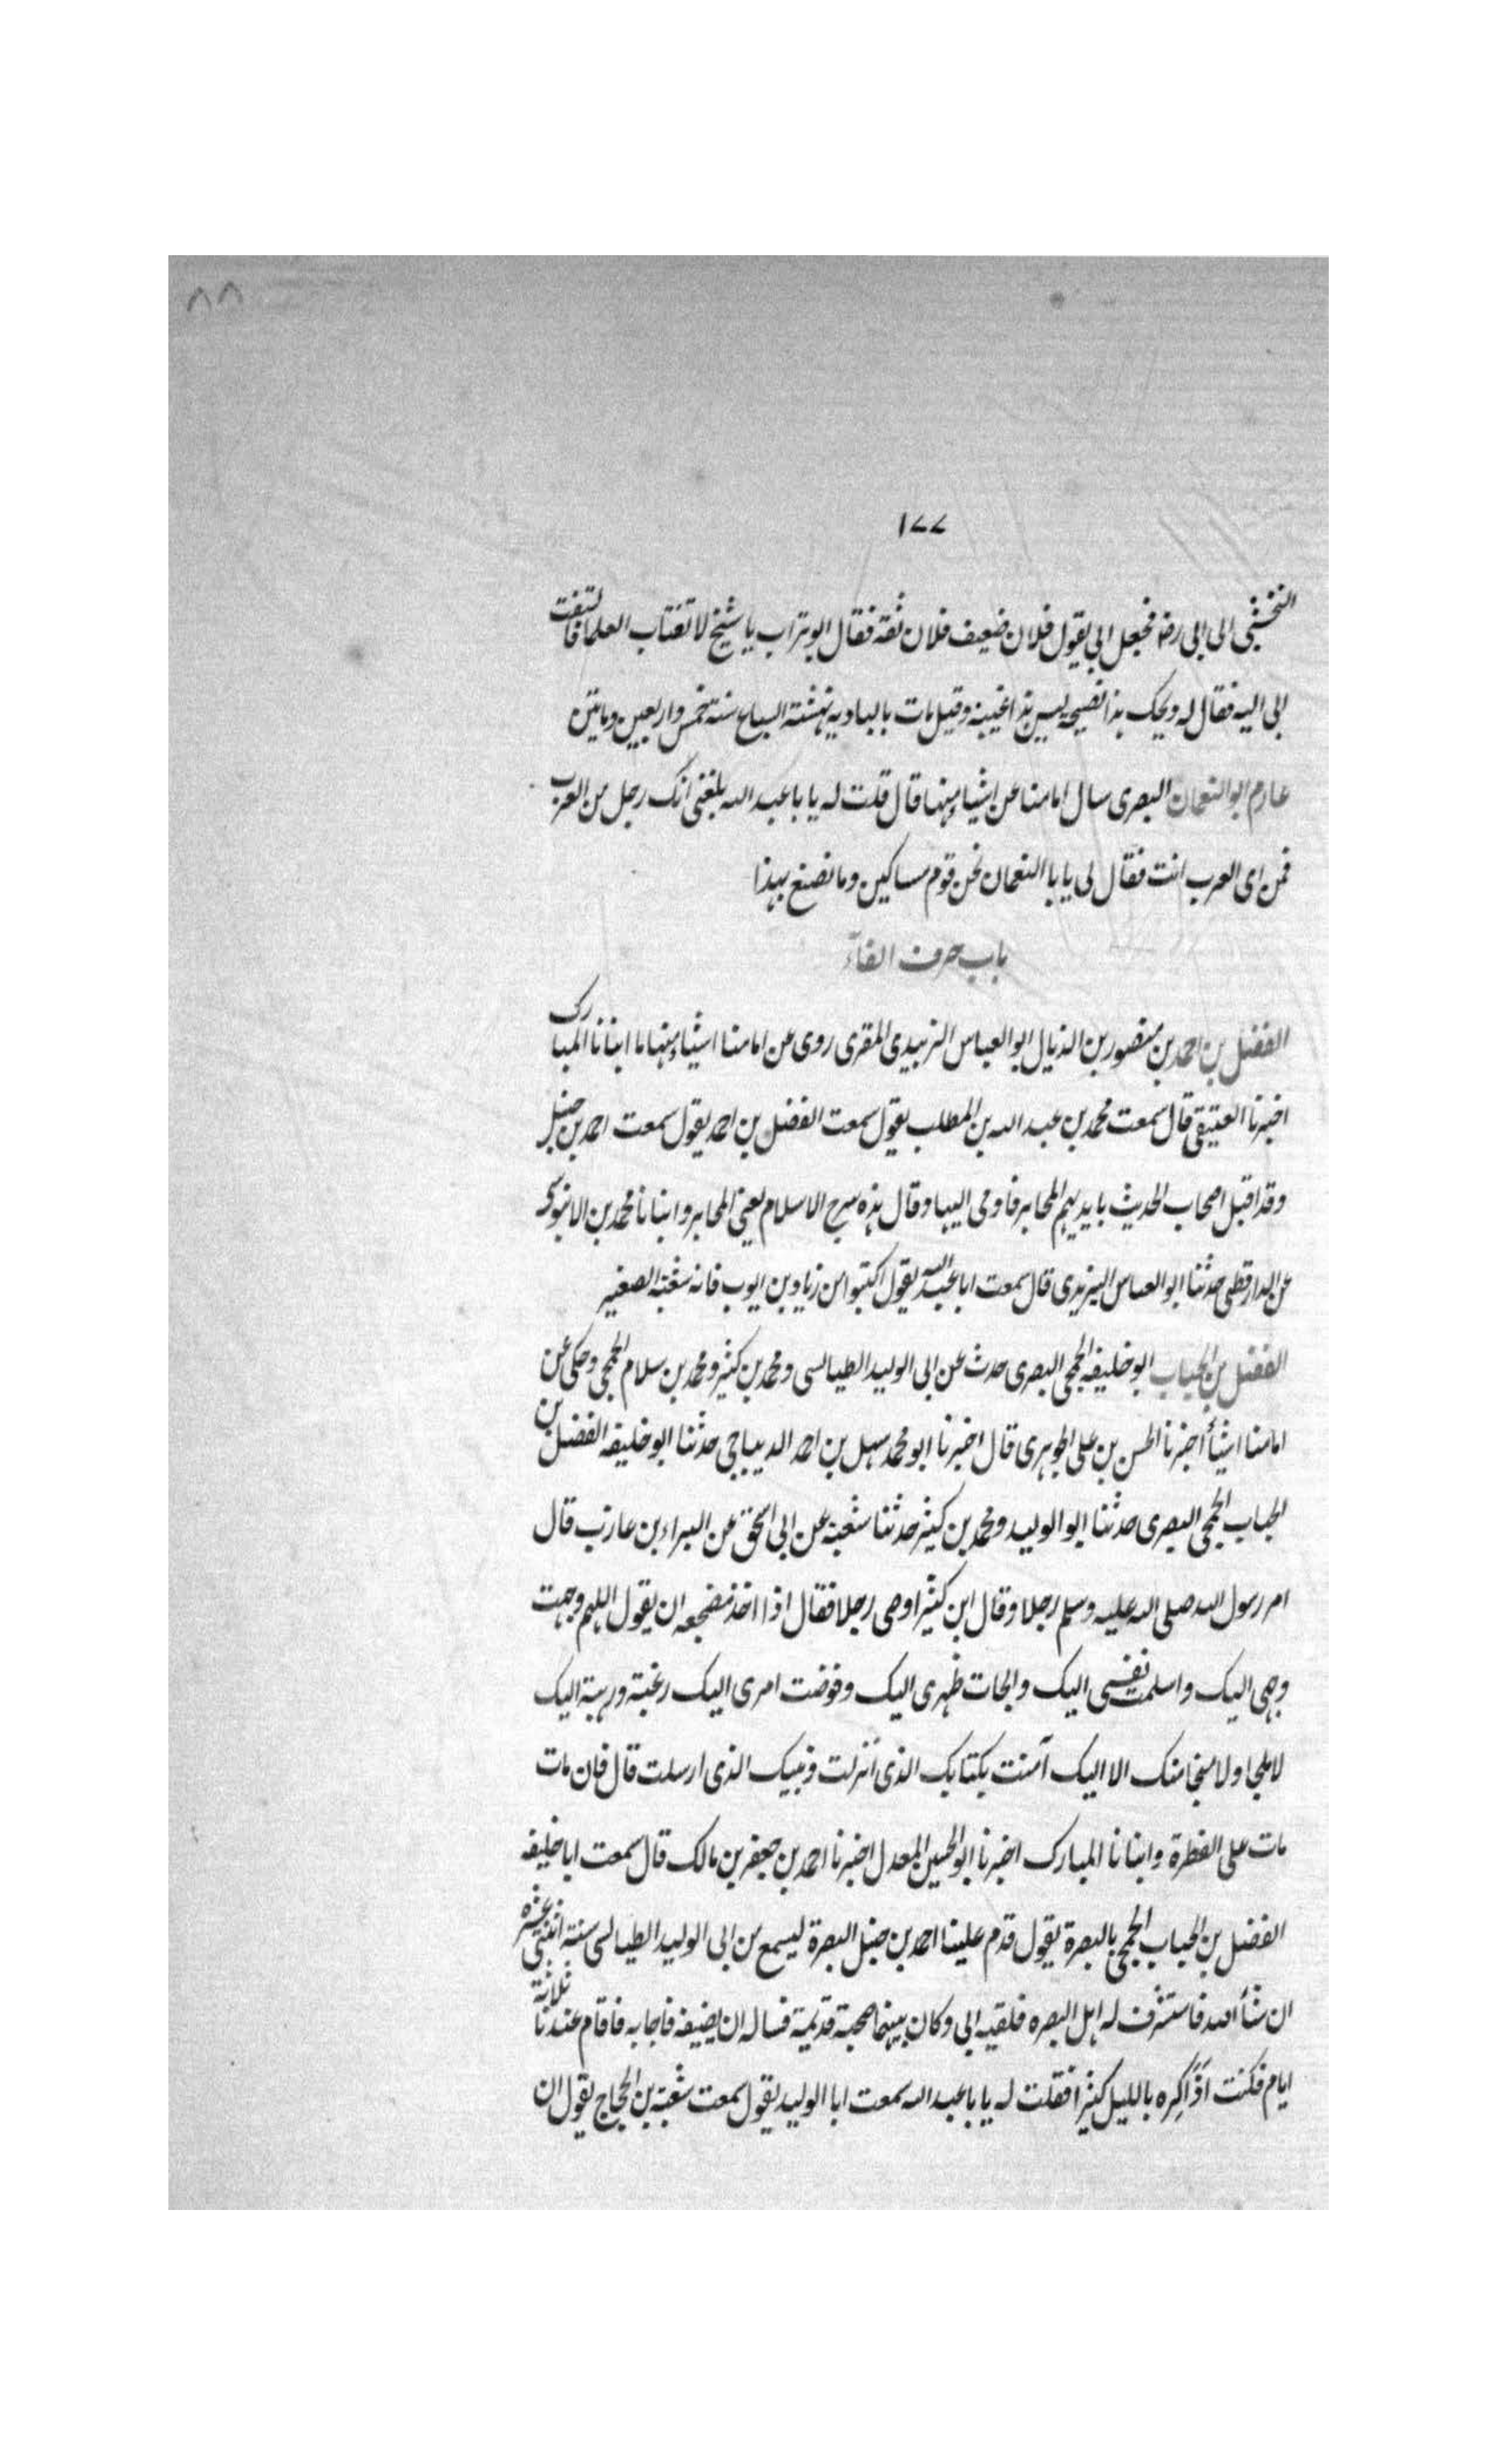 ٨٨
١٧٧
النخشبى الى ابى رضه فجعل ابى يقول فلان ضعيف فلان ثقة فقال ابو تراب يا شيخ لا تغتاب العلما فالتفت
ابى اليه فقال له ويحك هذا نصيحه ليس هذا غيبة وقيل مات بالباديه نهشته السباع سنة خمس واربعين وماتين
عارم ابو النعمان البصرى سال امامنا عن اشياء منها قال قلت له يا با عبد الله بلغنى انك رجل من العرب
فمن اى العرب انت فقال لى يا با النعمان نحن قوم مساكين وما نصنع بهذا
باب حرف الفآء
الفضل بن احمد بن منصور بن الذيال ابو العباس الزبيدى المقرى روى عن امامنا اشياء منها ما انبانا المبارك
اخبرنا العتيقى قال سمعت محمد بن عبد الله بن المطلب يقول سمعت الفضل بن احمد يقول سمعت احمد بن حنبل
وقد اقبل اصحاب الحديث بايديهم المحابر فاومى اليها وقال هذه سرج الاسلام يعنى المحابر وانبانا محمد بن الابنوسى
عن الدارقطنى حدثنا ابو العباس اليزيدى قال سمعت ابا عبد الله يقول اكتبوا من زياد بن ايوب فانه شعبة الصغير
الفضل بن الحباب ابو خليفه الجمحى البصرى حدث عن ابى الوليد الطيالسى ومحمد بن كثير ومحمد بن سلام الجمحى وحكى عن
امامنا اشيأ اخبرنا الحسن بن على الجوهرى قال اخبرنا ابو محمد سهل بن احمد الديباجى حدثنا ابو خليفه الفضل بن
الحباب الجمحى البصرى حدثنا ابو الوليد ومحمد بن كثير حدثنا شعبة عن ابى اسحق عن البراء بن عازب قال
امر رسول الله صلى الله عليه وسلم رجلا وقال ابن كثير اوصى رجلا فقال اذا اخذ مضجعه ان يقول اللهم وجهت
وجهى اليك واسلمت نفسى اليك والجات ظهرى اليك وفوضت امرى اليك رغبة ورهبة اليك
لا ملجا ولا منجا منك الا اليك آمنت بكتابك الذى انزلت ونبيك الذى ارسلت قال فان مات
مات على الفطرة وانبانا المبارك اخبرنا ابو الحسين المعدل اخبرنا احمد بن جعفر بن مالك قال سمعت ابا خليفه
الفضل بن الحباب الجمحى بالبصرة يقول قدم علينا احمد بن حنبل البصرة ليسمع من ابى الوليد الطيالسى سنة اثنتى عشره
ان شأ الله فاستشرف له اهل البصره فلقيه ابى وكان بينهما صحبة قديمة فساله ان يضيفه فاجابه فاقام عندنا ثلاثة
ايام فكنت اذاكره بالليل كثيرا فقلت له يا با عبد الله سمعت ابا الوليد يقول سمعت شعبة بن الحجاج يقول ان